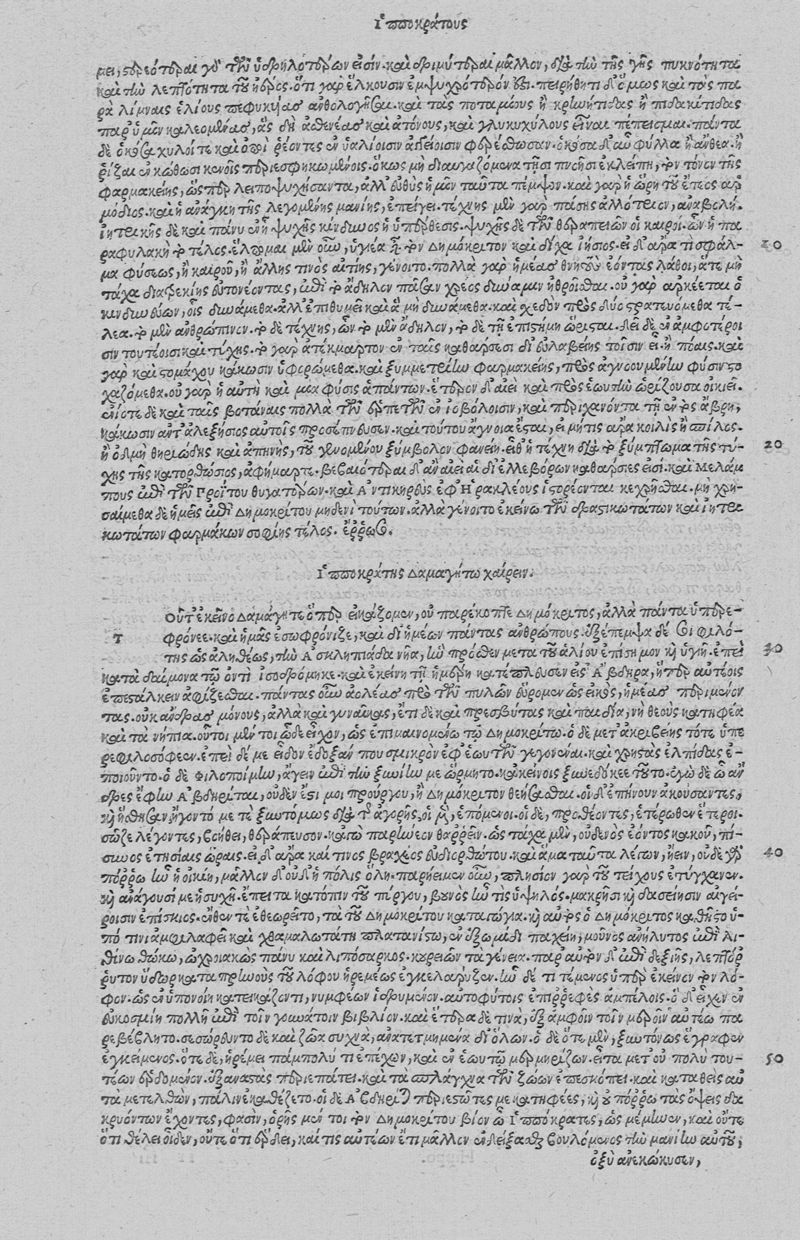 Ἱπποκράτους
μει, στερεότεραι γὰρ τῶν ὑψηλοτέρων εἰσὶν. καὶ δριμύτεραι μᾶλλον, διὰ τὴν τῆς γῆς πυκνότητα
καὶ τὴν λεπτότητα τοῦ ἠέρος. ὅτι γὰρ ἕλκουσιν ἐμψυχότερόν ἐστι. πειρήθητι δ' ὅμως καὶ τὰς πα
ρὰ λίμναις ἑλίους πεφυκυίας ἀνθολογῆσαι. καὶ τὰς ποταμίους ἢ κρηνίτιδας ἢ πιδακίτιδας
παρ' ὑμῖν καλεομένας, ἃς δὴ ἀσθενέας καὶ ἀτόνους, καὶ γλυκυχύλους εἶναι πέπεισμαι. πάντα
δὲ ὁκόσα χυλοί τε καὶ ὀποὶ ῥέοντες ἐν ὑαλίοισιν ἀγγείοισιν φερέσθωσαν. ὁκόσα δ' αὖ φύλλα ἢ ἄνθεα. ἢ
ῥίζαι ἐν κώθωσι καινοῖς περιεσφηκωμένοις. ὅκως μὴ διαυγαζόμενα τῇσι πνοῇσι ἐκλείπῃ, τὸν τόνον τῆς
φαρμακείης, ὥσπερ λειποψυχήσαντα, ἀλλ' εὐθὺς ἡμῖν ταῦτα πέμψον. καὶ γὰρ ἡ ὥρη τοῦ ἔτεος ἁρ
μόδιος. καὶ ἡ ἀνάγκη τῆς λεγομένης μανίης, ἐπείγει. τέχνης μὲν γὰρ πάσης ἀλλότριον, ἀναβολή.
ἰητρικῆς δὲ καὶ πάνυ ἐν ᾗ ψυχῆς κίνδυνος ἡ ὑπέρθεσις. ψυχῆς δὲ τῶν θεραπειῶν οἱ καιροί. ὧν ἡ πα
ραφυλακὴ τὸ τέλος. ἔλπομαι μὲν οὖν, ὑγιέα ᾖ τὸν Δημόκριτον καὶ δίχα ἰήσιος. εἰ δ' ἄρα τι σφάλ- 10
μα φύσεως, ἢ καιροῦ, ἢ ἄλλης τινὸς αἰτίης, γένοιτο. πολλὰ γὰρ ἡμέας θνητοὺς ἐόντας λάθοι, ἅτε μὴ
τάχα διατρεκίης εὐτονέοντας, ἐπὶ τὸ ἄδηλον πᾶσαν χρέος δύναμιν ἠθροῖσθαι. οὐ γὰρ ἀρκέεται ὁ
κινδυνεύων, οἷς δυνάμεθα. ἀλλ' ἐπιθυμεῖ καὶ ἃ μὴ δυνάμεθα. καὶ σχεδὸν πρὸς δύο στρατευόμεθα τέ-
λεα. τὸ μὲν ἀνθρώπινον. τὸ δὲ τέχνης, ὧν τὸ μὲν ἄδηλον, τὸ δὲ τῇ ἐπιστήμῃ ὥρισται. δεῖ δὲ ἐν ἀμφοτέροι
σιν τουτέοισι καὶ τύχης. τὸ γὰρ ἀτέκμαρτον ἐν ταῖς καθάρσεσι δι' εὐλαβείης τοῖσιν εἰ
γὰρ καὶ στομάχου κάκωσιν ὑφορώμεθα. καὶ ξυμμετρίην φαρμακείης, πρὸς ἀγνοουμένην φύσιν στο
χαζόμεθα. οὐ γὰρ ἡ αὐτὴ καὶ μία φύσις ἁπάντων. ἕτερον δ' αἰεὶ καὶ πρὸς ἑωυτὴν ὁρίζουσα οἰκιεῖ.
ἐνίοτε δὲ καὶ ταῖς βοτάναις πολλὰ τῶν ἑρπετῶν ἐνιοβόλοισιν, καὶ περιχανόντα τῇ ἐντὸς αὔρῃ,
κάκωσιν ἀντ' ἀλεξήσιος αὐτοῖς προσέπνευσεν. καὶ τούτου ἄγνοια ἔσται, εἰ μή τις ἄρα κοιλὶς ἢ σπίλος.
ἢ ὀδμὴ θηριώδης καὶ ἀπηνής, τοῦ γενομένου ξύμβολον φανείη. εἶθ' ἡ τέχνη διὰ τὸ ξύμπτωμα τῆς τύ- 20
χης τῆς κατορθώσιος, ἀφήμαρτε. βεβαιότεραι δ' ἂν αἰεὶ αἱ δι' ἑλλεβόρων καθάρσιες εἰσί. καὶ Μελάμ
πους ἐπὶ τῶν Προίτου θυγατέρων. καὶ Ἀντικηρεὺς ἐφ' Ἡρακλέους ἱστορέονται κεχρῆσθαι. μὴ χρη-
σαίμεθα δὲ ἡμεῖς ἐπὶ Δημοκρίτου μηδενὶ τούτων. ἀλλὰ γένοιτο ἐκείνῳ τῶν δραστικωτάτων καὶ ἰητρι
κωτάτων φαρμάκων σοφίης τέλος. ἔρρωσο.
Ἱπποκράτης Δαμαγήτῳ χαίρειν.
ΤΟῦτ' ἐκεῖνο Δαμάγητε ὅπερ εἰκάζομεν, οὐ παρέκοπτε Δημόκριτος, ἀλλὰ πάντα ὑπερε-
φρόνεε. καὶ ἡμᾶς ἐσωφρόνιζε, καὶ δι' ἡμέων πάντας ἀνθρώπους. ἐξέπεμψα δέ σοι φιλό-
της ὡς ἀληθέως, τὴν Ἀσκληπιάδα νῆα, ᾗ πρόσθεν μετὰ τοῦ ἁλίου ἐπίσημον καὶ ὑγίη. ἐπεὶ 30
κατὰ δαίμονα τῷ ὄντι ἱστιοδρόμηκε. καὶ ἐκείνῃ τῇ ἡμέρῃ κατέπλευσεν εἰς Ἄβδηρα, ᾗπερ αὐτέοις
ἐπεστάλκειν ἀφίξεσθαι. πάντας οὖν ἀολλέας πρὸ τῶν πυλῶν εὕρομεν ὡς εἰκὸς, ἡμέας περιμένον
τας. οὐκ ἄνδρας μόνους, ἀλλὰ καὶ γυναῖκας, ἔτι δὲ καὶ πρεσβύτας καὶ παιδία, νὴ θεοὺς κατηφέα
καὶ τὰ νήπια. οὗτοι μέντοι ὧδε εἶχον, ὡς ἐπὶ μαινομένῳ τῷ Δημοκρίτῳ. ὁ δὲ μετ' ἀκριβείης τότε ὑπε
ρεφιλοσόφεεν. ἐπεὶ δέ με εἶδον ἔδοξάν που σμικρὸν ἐφ' ἑωυτῶν γεγονέναι. καὶ χρηστὰς ἐλπίδας ἐ-
ποιοῦντο. ὁ δὲ Φιλοποίμην, ἄγειν ἐπὶ τὴν ξενίην με ὥρμητο. κἀκείνοις ξυνεδόκεε τοῦτο. ἐγὼ δὲ ὦ ἄν
δρες ἔφην Ἀβδηρῖται, οὐδέν ἐστί μοι προὔργου, ἢ Δημόκριτον θεήσασθαι. οἱ δ' ἐπῄνουν ἀκούσαντες,
καὶ ἥσθησαν, ἦγόν τέ με ξυντόμως διὰ τῆς ἀγορῆς, οἱ μὲν, ἑπόμενοι. οἱ δὲ, προθέοντες, ἑτέρωθεν ἕτεροι.
σῶζε λέγοντες, βοήθει, θεράπευσον. κἀγὼ παρῄνεον θαρρεῖν. ὡς τάχα μὲν, οὐδενὸς ἐόντος κακοῦ, πί-
συνος ἐτησίαις ὥραις. εἰ δ' ἄρα καί τινος βραχέος εὐδιορθώτου. καὶ ἅμα ταῦτα λέγων, ᾔειν, οὐδὲ γὰρ 40
πόρρω ἦν ἡ οἰκίη, μᾶλλον δ' οὐδ' ἡ πόλις ὅλη. παρῄειμεν οὖν, πλησίον γὰρ τοῦ τείχους ἐτύγχανεν.
καὶ ἀνάγουσί με ἡσυχῆ. ἔπειτα κατόπιν τοῦ πύργου, βουνὸς ἦν τις ὑψηλὸς. μακρῇσι καὶ δασείῃσιν αἰγεί-
ροισιν ἐπίσκιος. ἔνθεν τε ἐθεωρεῖτο, τὰ τοῦ Δημοκρίτου καταγώγια. καὶ αὐτὸς ὁ Δημόκριτος καθῆστο ὑ-
πό τινι ἀμφιλαφεῖ καὶ χθαμαλωτάτῃ πλατανίστῳ, ἐν ἐξωμίδι παχείῃ, μοῦνος ἀνήλιπος ἐπὶ λι-
θίνῳ θώκῳ, ὠχριακὼς πάνυ καὶ λιπόσαρκος. κουριῶν τὰ γένεια. παρ' αὐτὸν δ' ἐπὶ δεξιῆς, λεπτόρ-
ρυτον ὕδωρ κατὰ πρηνοῦς τοῦ λόφου ἠρεμέως ἐγκελάρυζεν. ἦν δέ τι τέμενος ὑπὲρ ἐκεῖνον τὸν λό-
φον. ὡς ἐν ὑπονοίῃ κατεικάζοντι, νυμφέων ἱδρυμένον. αὐτοφύτοις ἐπηρεφὲς ἀμπέλοις. ὁ δ' εἶχεν ἐν
εὐκοσμίῃ πολλῇ ἐπὶ τοῖν γουνάτοιν βιβλίον. καὶ ἕτερα δέ τινα, ἐξ ἀμφοῖν τοῖν μεροῖν αὐτέῳ πα
ρεβέβλητο. σεσώρευντο δὲ καὶ ζῶα συχνά, ἀνατετμημένα δι' ὅλων. ὁ δὲ ὁτὲ μὲν, ξυντόνως ἔγραφεν
ἐγκείμενος. ὁτὲ δὲ, ἠρέμει πάμπολύ τι ἐπέχων, καὶ ἐν ἑωυτῷ μερμηρίζων. εἶτα μετ' οὐ πολὺ του- 50
τέων ἐρδομένων. ἐξαναστὰς περιεπάτει. καὶ τὰ σπλάγχνα τῶν ζώων ἐπεσκόπει. καὶ καταθεὶς αὐ
τὰ μετελθὼν, πάλιν ἐκαθέζετο. οἱ δὲ Ἀβδηρῖται περιεστῶτές με κατηφέες, καὶ οὐ πόρρω τὰς ὄψεις δα
κρυόντων ἔχοντες, φασὶν, ὁρῇς μέντοι τὸν Δημοκρίτου βίον ὦ Ἱππόκρατες, ὡς μέμηνεν, καὶ οὔτε
ὅτι θέλει οἶδεν, οὔτε ὅτι ἔρδει, καί τις αὐτέων ἔτι μᾶλλον ἐνδείξασθαι βουλόμενος τὴν μανίην αὐτοῦ,
ὀξὺ ἀνεκώκυσεν,